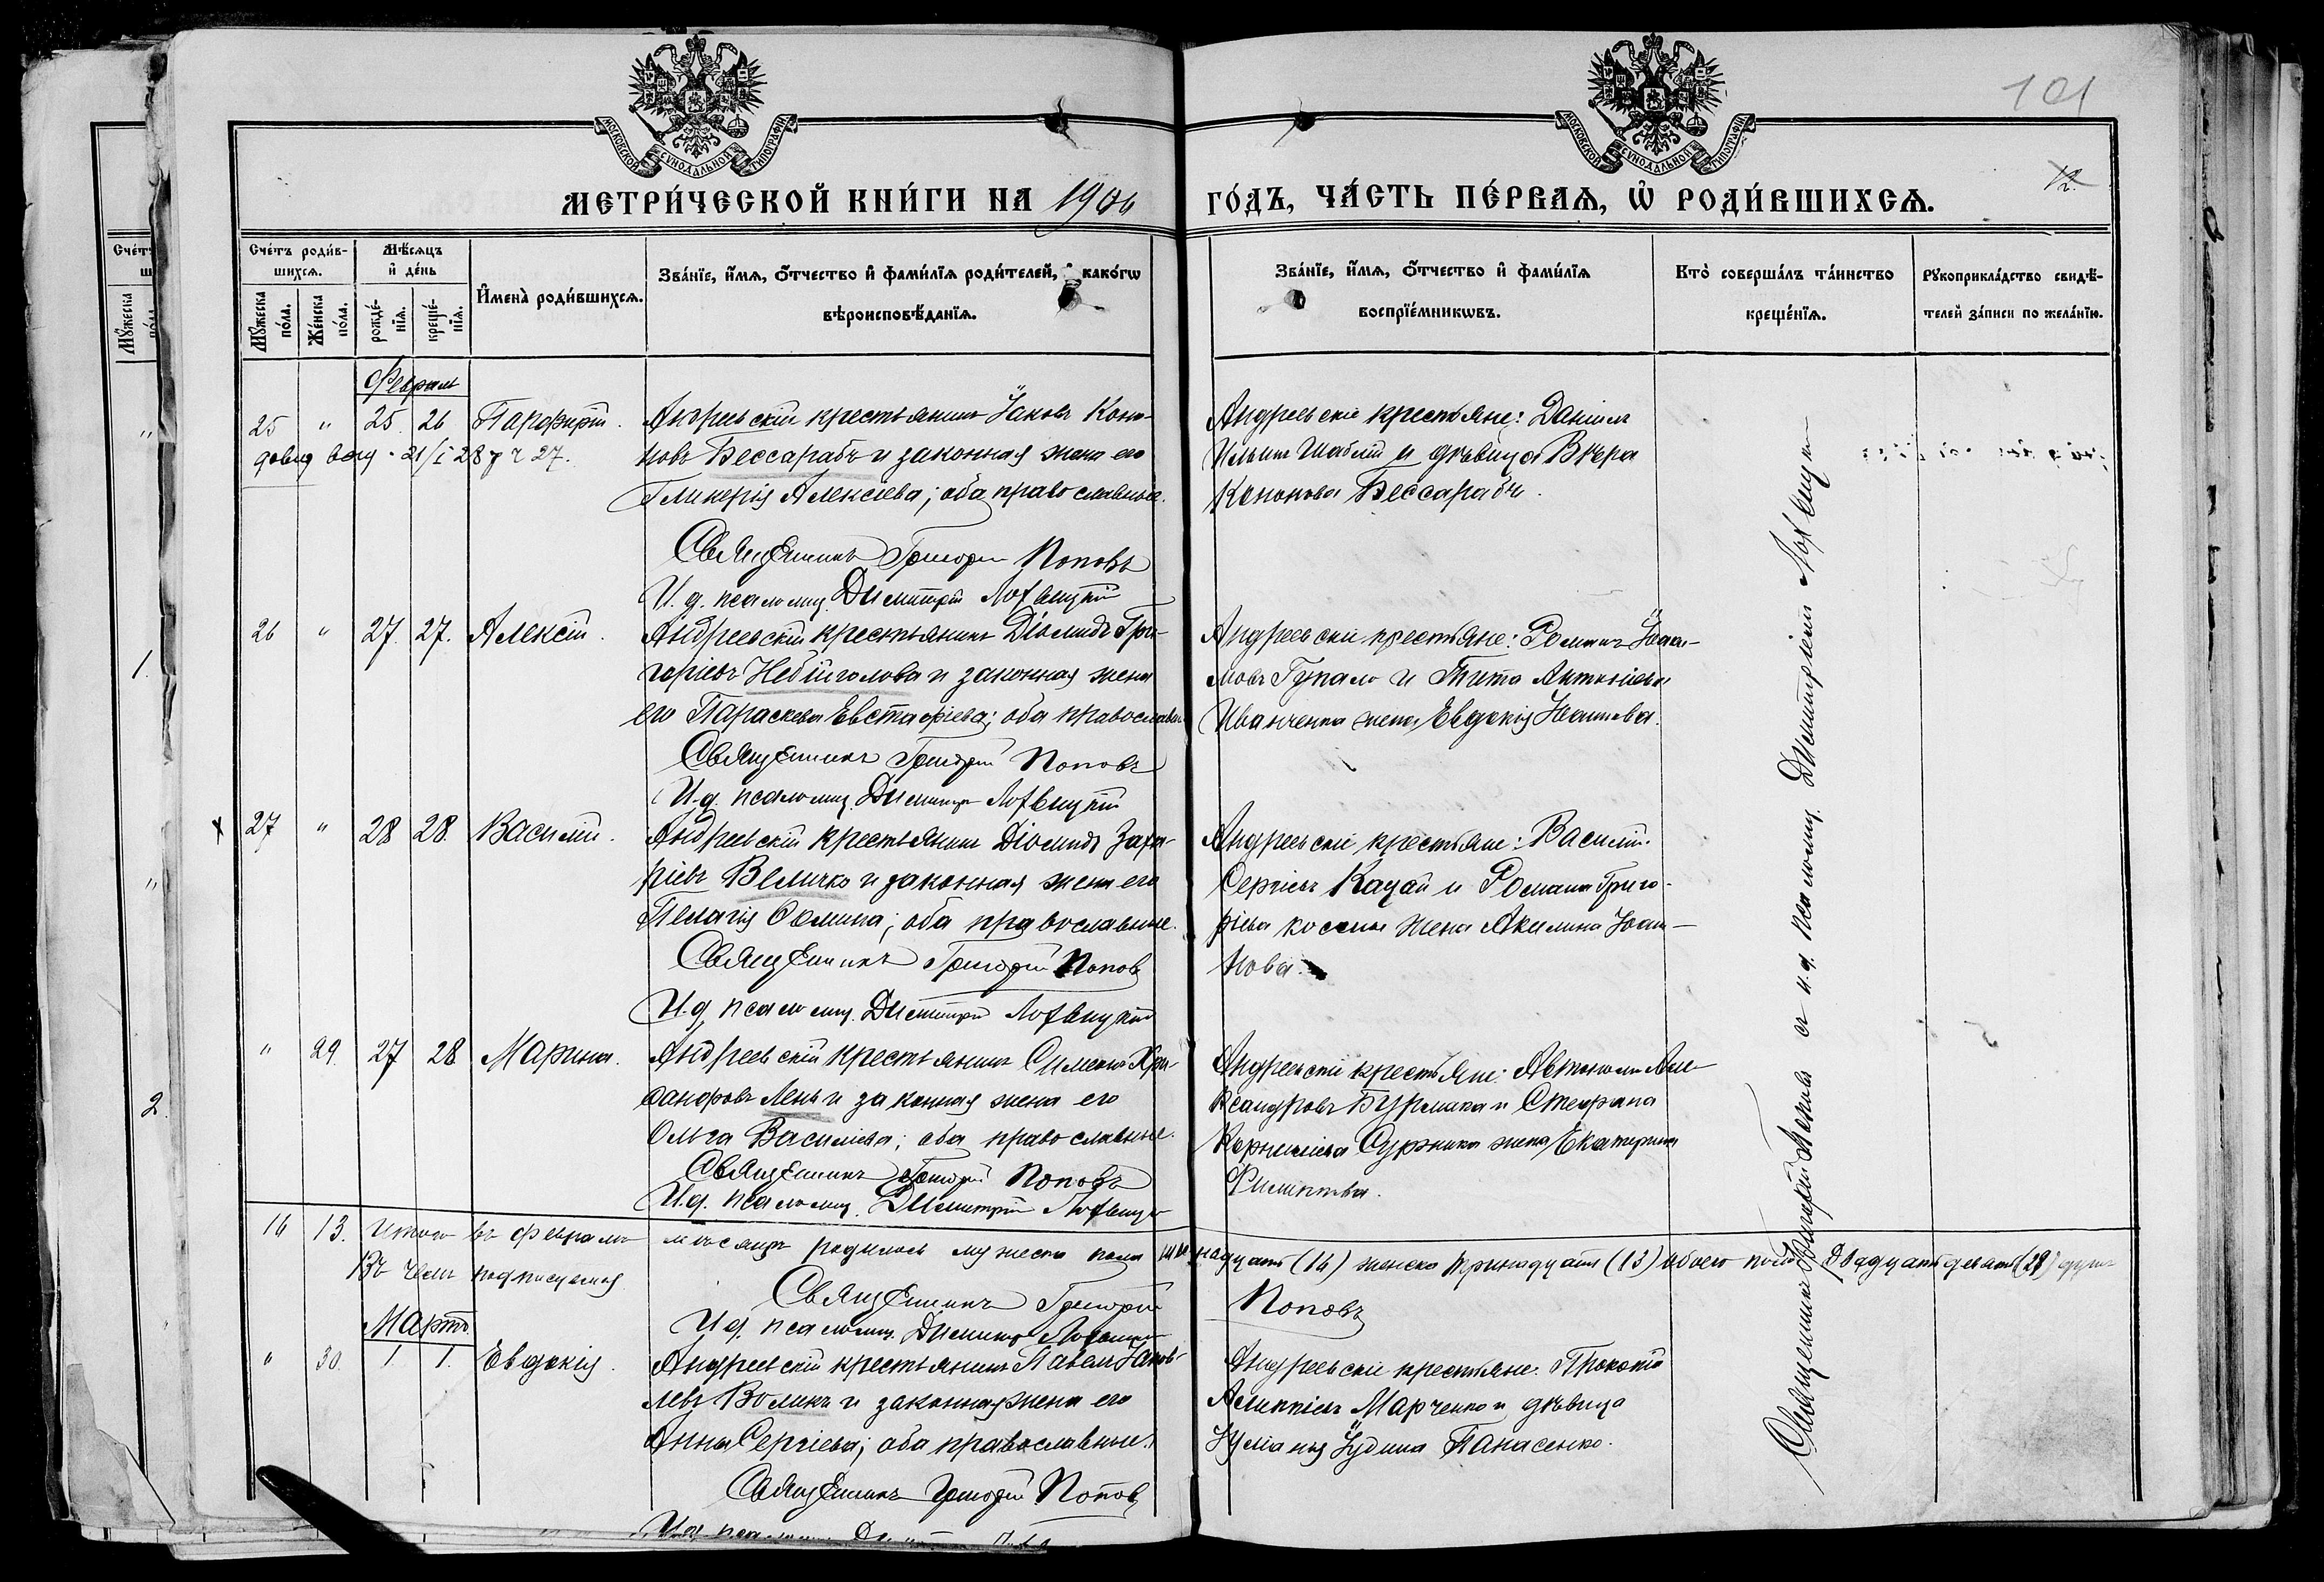 101
12.
МОСКОВСКОЙ СѴНОДАЛЬНОЙ ТИПОГРАФІИ
МОСКОВСКОЙ СѴНОДАЛЬНОЙ ТИПОГРАФІИ
МЕТРИ́ЧЕСКОЙ КНИ́ГИ НА 190 ГО́ДЪ, ЧА́СТЬ ПЕ́РВАѦ, Ѡ РОДИ́ВШИХСѦ.
Сче́тъ роди́в-
шихсѧ.
Мꙋ́жеска по́ла.
Же́нска по́ла.
Мѣ́сѧцъ и де́нь
рожде́-
нїѧ.
креще́-
нїѧ.
Имена̀ роди́вшихсѧ.
Зва́нїе, и́мѧ, ѻ́тчество и фами́лїѧ роди́телей, и како́гѡ
вѣроисповѣ́данїѧ.
Зва́нїе, и́мѧ, ѻ́тчество и фами́лїѧ
воспрїе́мникѡвъ.
Кто̀ соверша́лъ та́инство
креще́нїѧ.
Рꙋкоприкла́дство свидѣ́-
телей за́писи по жела́нїю.
Февраль
25 " 25 26 Парфирій.
Андреевскій крестьянинъ Іаковъ Коно-
новъ Бессарабъ и законная жена его
Гликерія Алексіева; оба православные.
Священникъ Григорій Поповъ
И. д. псаломщ. Димитрій Лотвицкій
Андреевскіе крестьяне: Даніилъ
Ильинъ Шаблій и дѣвица Вѣра
Кононова Бессарабъ.
26 " 27. 27. Алексій.
Андреевскій крестьянинъ Діомидъ Гри-
горіевъ Небійголова и законная жена
его Параскева Евстафіева; оба православн.
Священникъ Григорій Поповъ
И. д. псаломщ. Димитрій Лотвицкій
Андреевскіе крестьяне: Романъ
Гупало и Тита Антоніева
Иванченка жена Евдокія Іоаннова.
27 " 28 28. Василій.
Андреевскій крестьянинъ Діомидъ Заха-
ріевъ Величко и законная жена его
Пелагія Фомина; оба православные.
Священникъ Григорій Поповъ
И. д. псаломщ. Димитрій Лотвицкій
Андреевскіе крестьяне: Василій
Сергіевъ Кацай и Романа Григо-
ріева жена Акилина Іоан-
нова.
" 29. 27 28 Марина.
Андреевскій крестьянинъ Симеонъ Хри-
санфовъ Лень и законная жена его
Ольга Василіева; оба православные.
Священникъ Григорій Поповъ
И. д. псаломщ. Димитрій Лотвицкій
Андреевскіе крестьяне: Автономъ Але-
ксандровъ Бурлака и Стефана
Корниліева Суржика жена Екатерина
Филиппова.
16 13. Итого въ февралѣ мѣсяцѣ родилось мужеска пола шестнадцать (16) женска тринадцать (13) обоего пола двадцать девять (29) душъ
Въ чемъ подписуемся
Священникъ Григорій Поповъ
И. д. псаломщ. Димитрій Лотвицкій
Мартъ
" 30. 1 1. Евдокія.
Андреевскій крестьянинъ Павелъ Іаков-
левъ Воликъ и законная жена его
Анна Сергіева; оба православные.
Священникъ Григорій Поповъ
Андреевскіе крестьяне: Прокопій
Алипіевъ Марченко и дѣвица
Іуліанія Іудина Панасенко.
Священникъ Григорій Поповъ съ и. д. псаломщ. Димитріемъ Лотвицкимъ